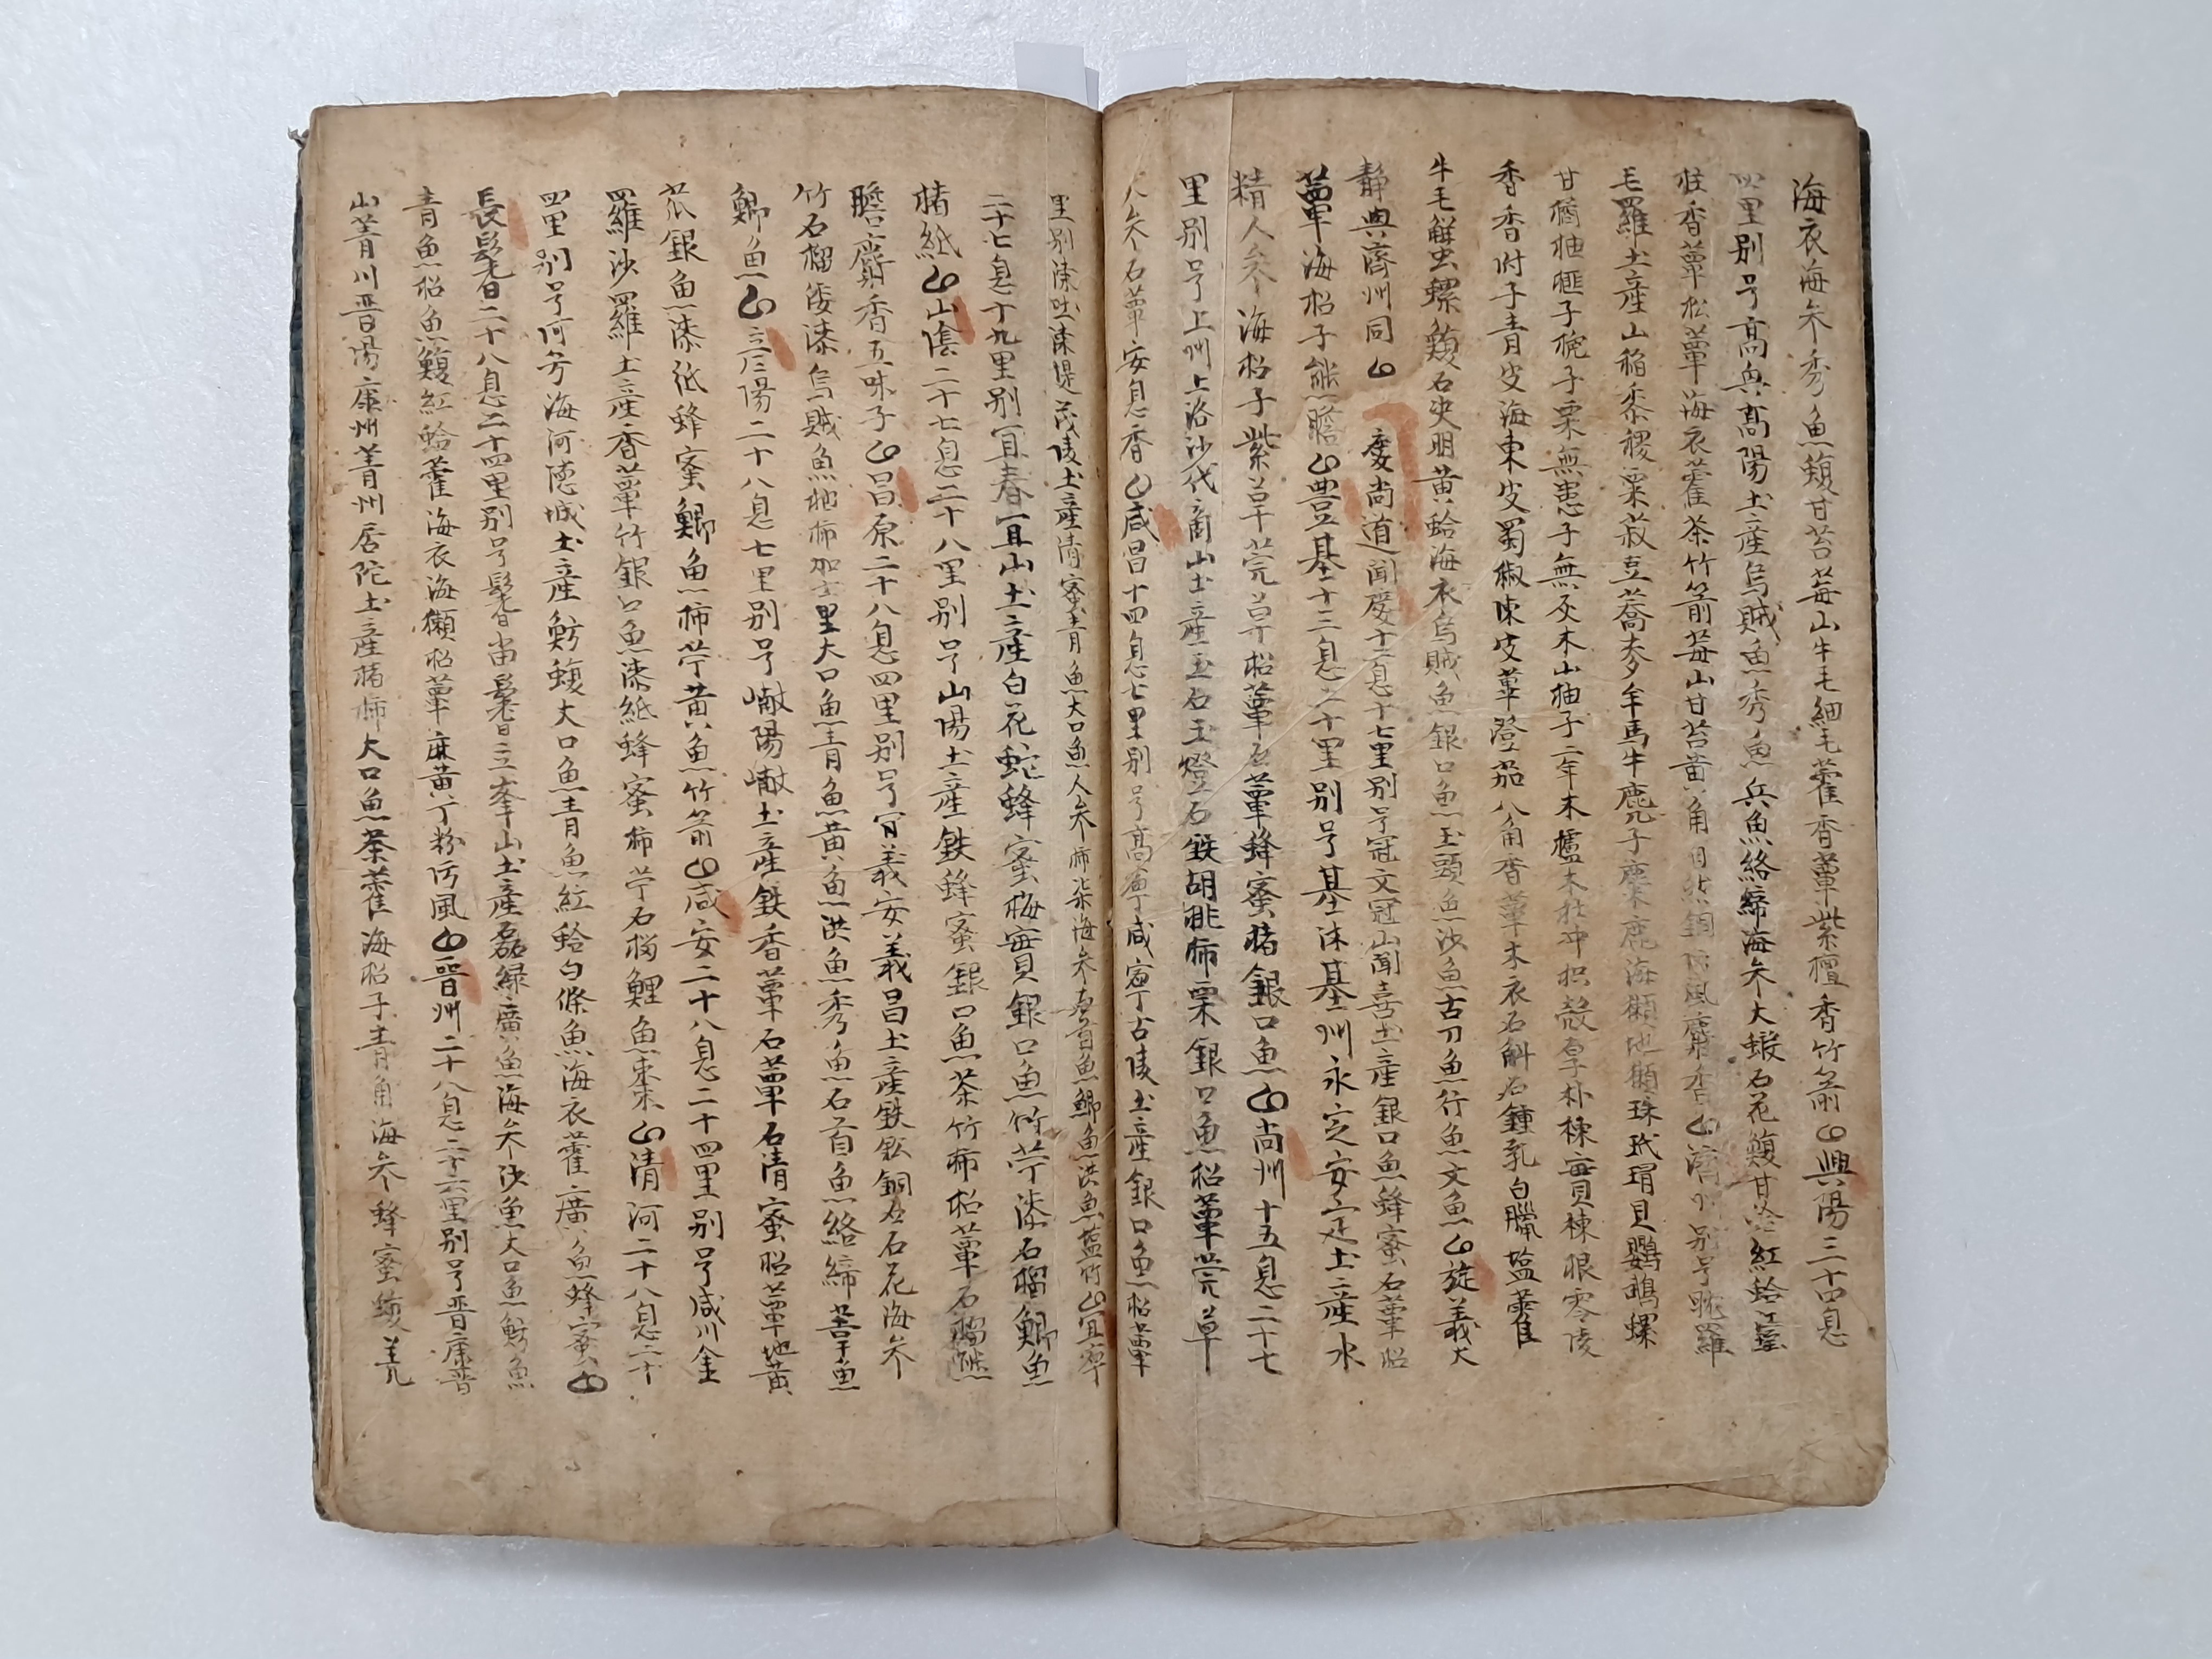 海衣海参秀魚鰒甘苔莓山牛毛細毛藿香蕈紫檀香竹箭興陽三十四息
四里别号高興高陽土産烏賊魚秀魚兵魚絡締海参大蝦石花鰒甘苔紅蛤
柱香蕈松蕈海衣藿茶竹箭莓山甘苔黄角自然銅防風麝香濟州别号耽羅
毛羅土産山稻黍稷粟菽豆蕎麥牟馬牛鹿麂子麋鹿海獺地獺珠玳瑁貝鸚鵡螺
甘橘柚榧子梔子栗無患子無灰木山柚子二年木櫨木杜冲枳殼厚朴楝實楝根零陵
香香附子青皮海東皮蜀椒陳皮蓽澄茄八角香蕈木衣石斛石鍾乳白臘塩藿
牛毛蠏虫螺鰒石决明黄蛤海衣烏賊魚銀口魚玉頭魚沙魚古刀魚行魚文魚旌義大
靜與濟州同 慶尚道聞慶十二息十七里别号冠文冠山聞喜土産銀口魚蜂蜜石蕈松
蕈海松子熊膽豊基十三息二十里别号基沐基州永定安定土産水
精人参海松子紫草莞草松蕈石蕈蜂蜜楮銀口魚尚州十五息二十七
里别号上州上洛沙伐商山土産玉石玉燈石鉄胡桃柿栗銀口魚松蕈莞草
人参石蕈安息香咸昌十四息七里别号高寧咸寧古陵土産銀口魚松蕈
里别漆吐漆堤茂陵土産清蜜青魚大口魚人参柿柒海参魚鯽魚洪魚塩竹宜寧
二十七息十九里别宜春宜山土産白花蛇蜂蜜梅實銀口魚竹苧漆石榴鯽魚
楮紙山陰二十七息二十八里别号山陽土産鉄蜂蜜銀口魚茶竹柿松蕈石榴熊
膽麝香五味子昌原二十八息四里别号義安義昌土産鉄鈆銅石花海参
竹石榴倭漆烏賊魚柿加士里大口魚青魚黄魚洪魚秀魚石首魚絡締苦干魚
鯽魚三嘉陽二十八息七里别号嶽陽嶽土産鉄香蕈石蕈石清蜜松蕈地黄
瓜銀魚漆紙蜂蜜鯽魚柿苧黄魚竹箭咸安二十八息二十四里别号咸川金
羅沙羅土産香蕈竹銀口魚漆紙蜂蜜柿苧石榴鯉魚棗清河二十八息二十
四里别号阿兮海河德城土産魴鰒大口魚青魚紅蛤白條魚海衣藿廣魚蜂蜜
長鬐二十八息二十四里别号鬐畓鬐立峯山土産磊緑廣魚海参洪魚大口魚魴魚
青魚松魚鰒紅蛤藿海衣海獺松蕈麻黄丁粉防風晋州二十八息二十六里别号晋康晋
山菁川晋陽康州菁州居陀土産楮柿大口魚茶藿海松子青角海参蜂蜜